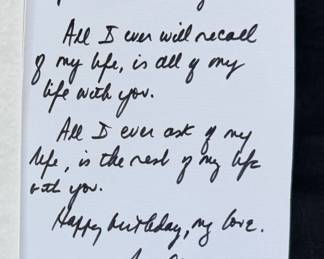 All I ever will recall
of my life, is all of my
life with you.
All I ever ask of my
life, is the rest of my life
with you.
Happy birthday, my love.